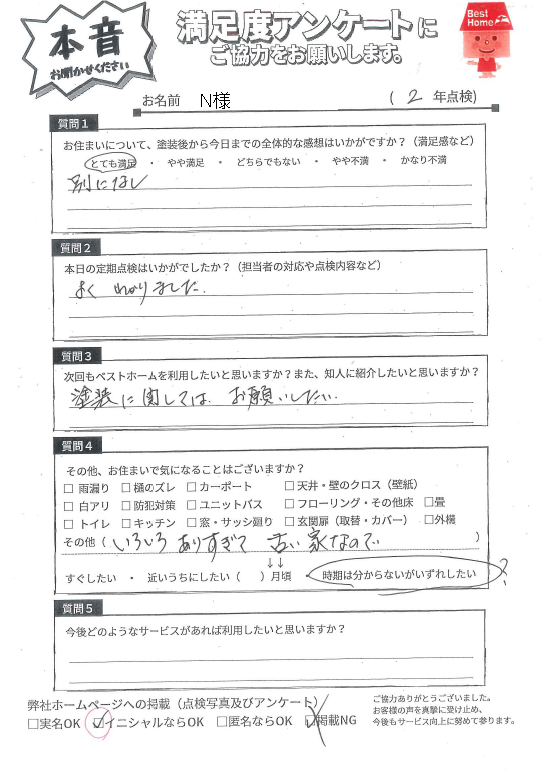 本音
お聞かせください
満足度アンケートに
ご協力をお願いします。
Best
Home
お名前 N様 ( 2 年点検)
質問1
お住まいについて、塗装後から今日までの全体的な感想はいかがですか?(満足感など)
とても満足 ・ やや満足 ・ どちらでもない ・ やや不満 ・ かなり不満
別になし
質問2
本日の定期点検はいかがでしたか?(担当者の対応や点検内容など)
よく わかりました.
質問3
次回もベストホームを利用したいと思いますか?また、知人に紹介したいと思いますか?
塗装に関しては、お願いしたい.
質問4
その他、お住まいで気になることはございますか?
□ 雨漏り □ 樋のズレ □ カーポート □ 天井・壁のクロス(壁紙)
□ 白アリ □ 防犯対策 □ ユニットバス □ フローリング・その他床 □畳
□ トイレ □ キッチン □ 窓・サッシ廻り □ 玄関扉(取替・カバー) □外構
その他( いろいろ ありすぎて 古い 家なので )
↓↓
すぐしたい ・ 近いうちにしたい( )月頃 ・ 時期は分からないがいずれしたい ?
質問5
今後どのようなサービスがあれば利用したいと思いますか?
弊社ホームページへの掲載(点検写真及びアンケート)
□実名OK ☑イニシャルならOK □匿名ならOK ☑掲載NG
ご協力ありがとうございました。
お客様の声を真摯に受け止め、
今後もサービス向上に努めて参ります。